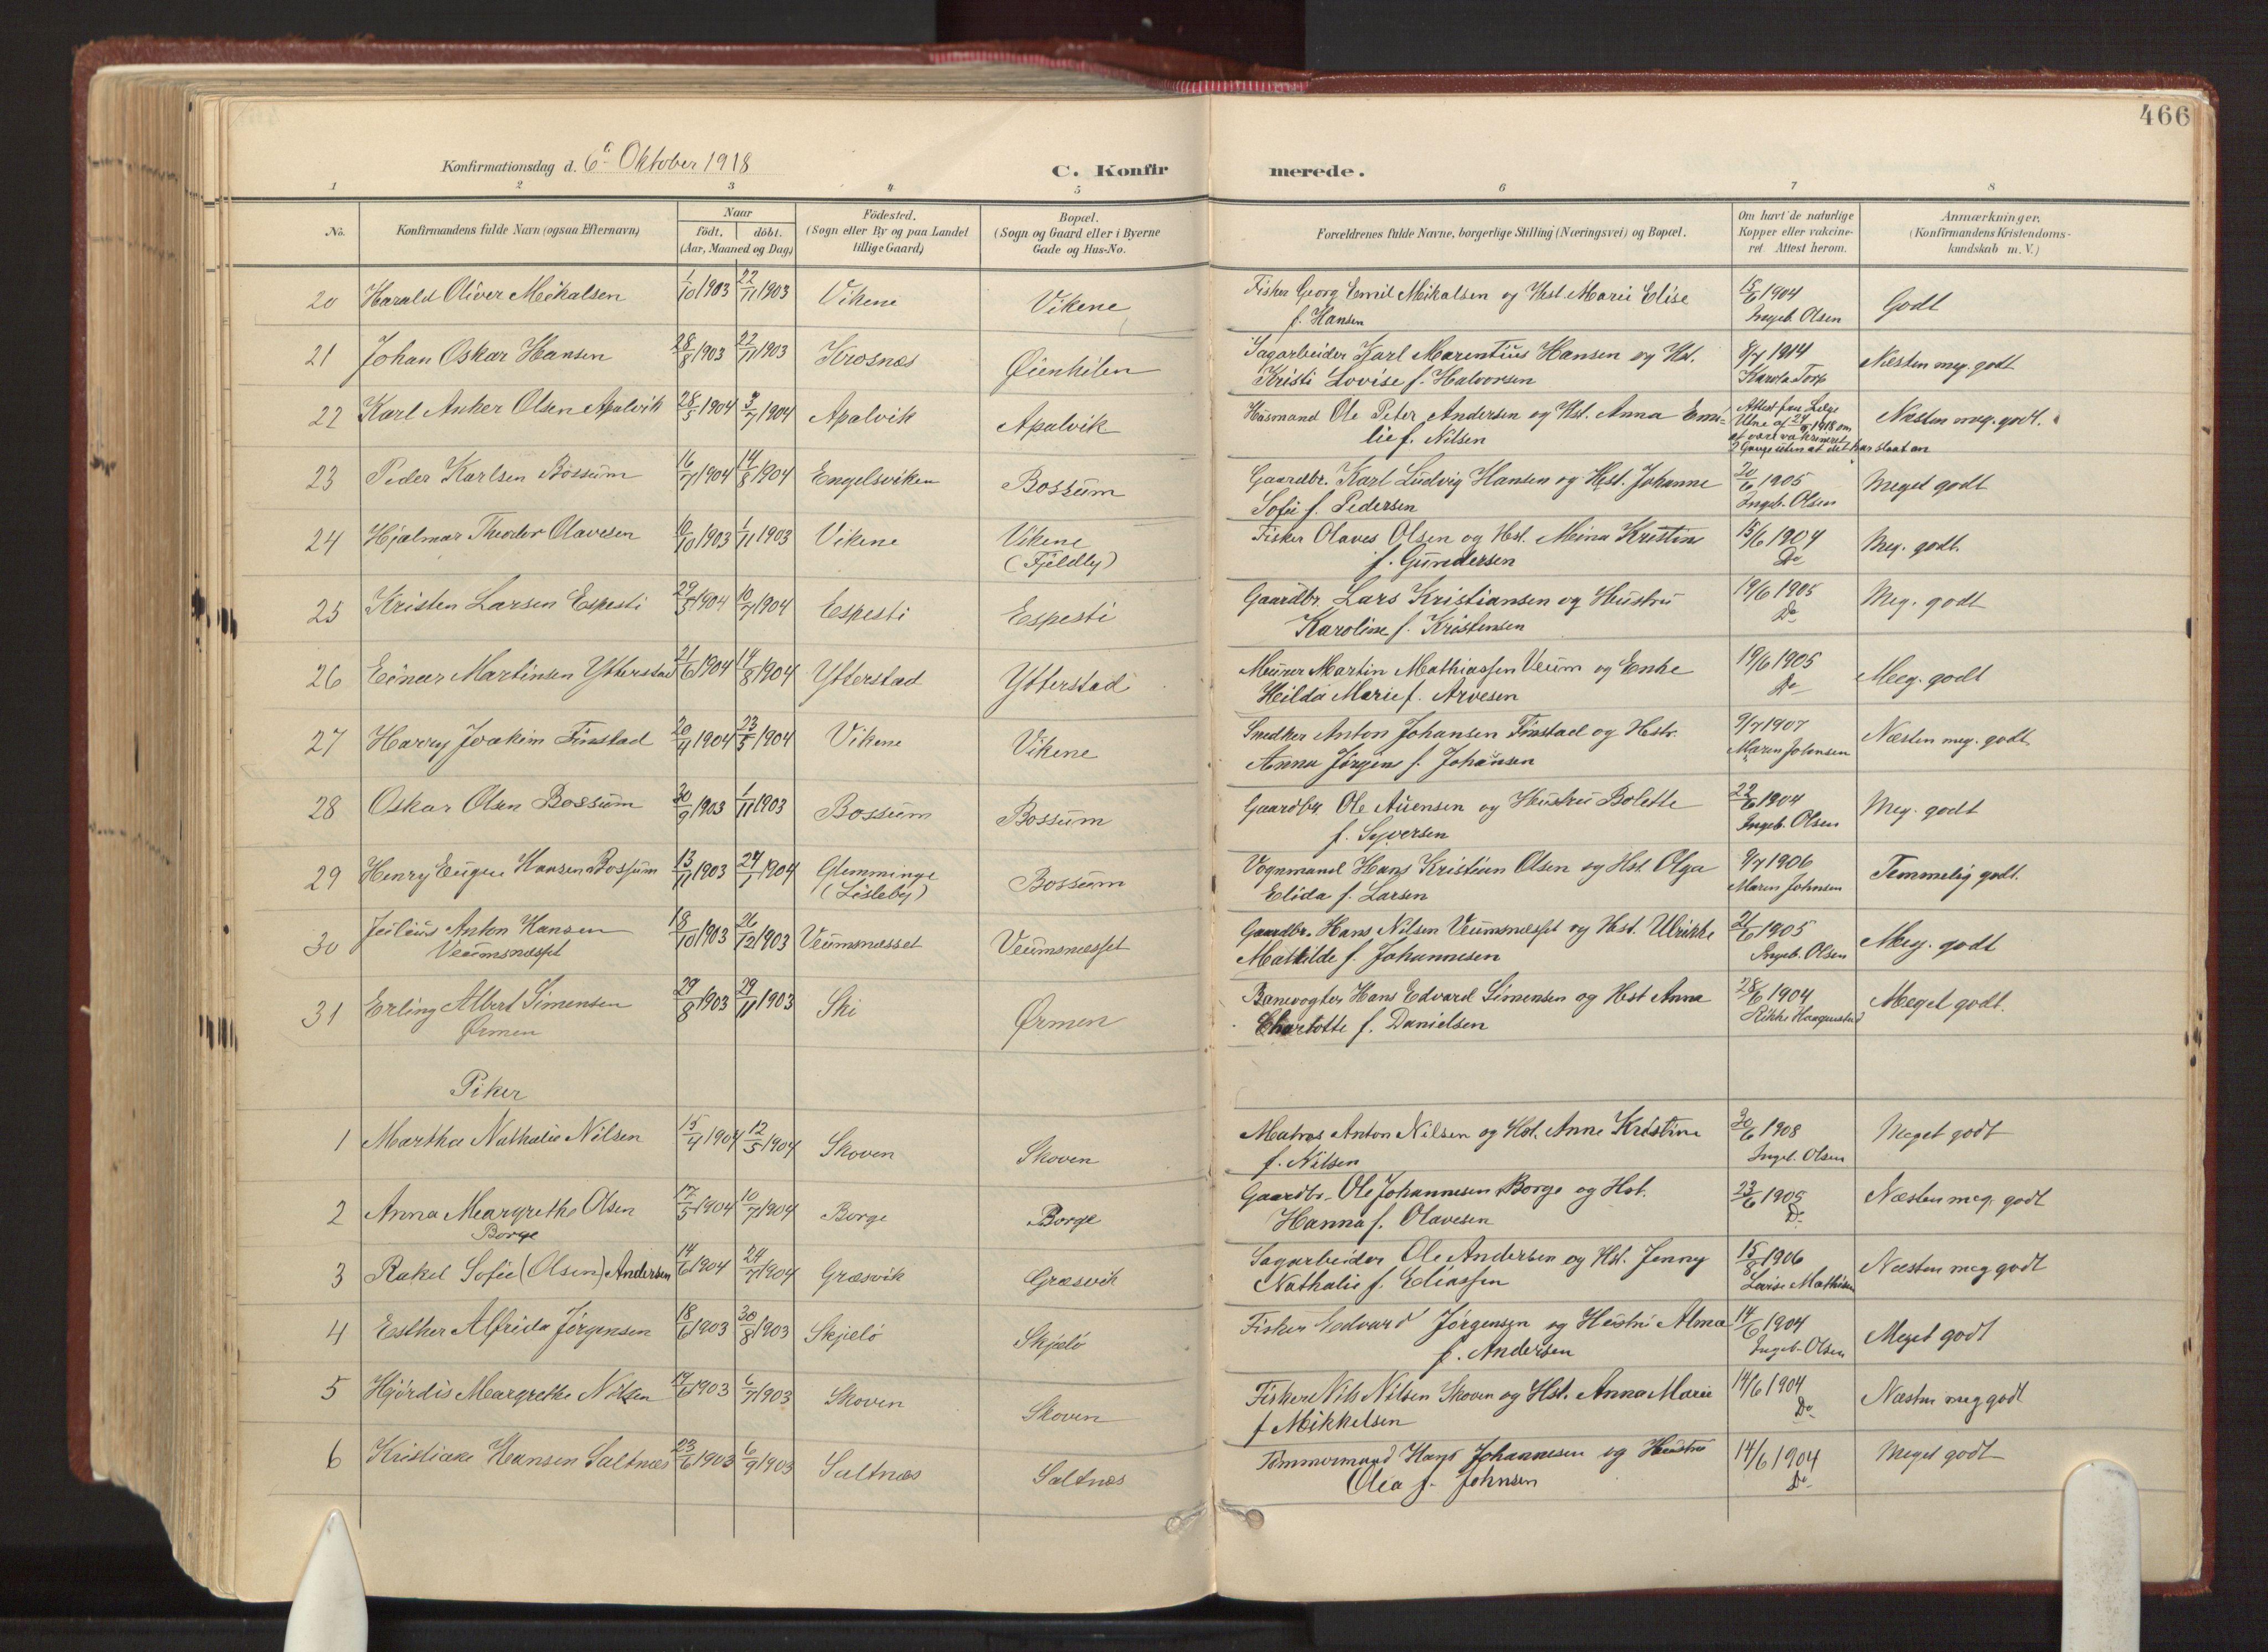 466
Konfirmationsdag d. 6te Oktober 1918 C. Konfirmerede.
1 2 3 4 5 6 7 8
No. Konfirmandens fulde Navn (ogsaa Efternavn) Naar födt. döbt. (Aar, Maaned og Dag) Födested. (Sogn eller By og paa Landet tillige Gaard) Bopæl. (Sogn og Gaard eller i Byerne Gade og Hus-No. Forældrenes fulde Navne, borgerlige Stilling (Næringsvei) og Bopæl. Om havt de naturlige Kopper eller vakcineret. Attest herom. Anmærkninger. (Konfirmandens Kristendomskundskab m. V.)
20 Harald Oliver Mikalsen 1/10 1903 22/11 1903 Vikene Vikene Fisker Georg Emil Mikalsen og Hst. Marie Elise 15/6 1904 Godt
f. Hansen Ingeb. Olsen
21 Johan Oskar Hansen 28/8 1903 22/11 1903 Krosnæs Øienkilen Sagarbeider Karl Marentius Hansen og Hst. 8/7 1914 Næsten meg. godt
Kristi Lovise f. Halvorsen Karola Torp
22 Karl Anker Olsen Apalvik 28/5 1904 3/7 1904 Apalvik Apalvik Husmand Ole Peter Andersen og Hst. Anna Emi- Attest fra Læge Næsten meg. godt.
lie f. Nilsen Utne af 24/9 1918 om
at være vaksineret
2 Gange uten at det har slaat an
23 Peder Karlsen Bossum 16/7 1904 14/8 1904 Engelsviken Bossum Gaardbr. Karl Ludvig Hansen og Hst. Johanne 20/6 1905 Meget godt
Sofie f. Pedersen Ingeb. Olsen
24 Hjalmar Theodor Olavesen 6/10 1903 1/11 1903 Vikene Vikene Fisker Olaves Olsen og Hst. Mina Kristine 15/6 1904 Meg. godt.
(Fjeldly) f. Gundersen Do
25 Kristen Larsen Espesti 29/5 1904 10/7 1904 Espesti Espesti Gaardbr. Lars Kristiansen og Hustru 19/6 1905 Meg. godt
Karoline f. Kristensen Do
26 Einar Martinsen Ytterstad 21/6 1904 14/8 1904 Ytterstad Ytterstad Murer Martin Mathiassen Veum og Enke 19/6 1905 Meg. godt
Hilda Marie f. Arvesen Do
27 Harry Joakim Finstad 20/4 1904 23/5 1904 Vikene Vikene Snedker Anton Johansen Finstad og Hstr. 9/7 1907 Næsten meg. godt
Anna Jörgine f. Johansen Maren Johnsen
28 Oskar Olsen Bossum 30/9 1903 1/11 1903 Bossum Bossum Gaardbr. Ole Auensen og Hustru Bolette 22/6 1904 Meg. godt
f. Syversen Ingeb. Olsen
29 Henry Eugen Hansen Bossum 13/11 1903 24/1 1904 Glemminge Bossum Vognmand Hans Kristian Olsen og Hst. Olga 9/7 1906 Temmelig godt.
(Lisleby) Elida f. Larsen Maren Johnsen
30 Julius Anton Hansen 18/10 1903 26/12 1903 Veumsnæsset Veumsnæsset Gaardbr. Hans Nilsen Veumsnæsset og Hst. Ulrikke 21/6 1905 Meg. godt
Veumsnæsset Mathilde f. Johannesen Ingeb. Olsen
31 Erling Albert Simensen 29/8 1903 29/11 1903 Ski Ørmen Banevogter Hans Edvard Simensen og Hst Anna 28/6 1904 Meget godt.
Ørmen Charlotte f. Danielsen Rikke Haagenstad
Piker
1 Martha Nathalie Nilsen 15/4 1904 12/5 1904 Skoven Skoven Matros Anton Nilsen og Hst. Anne Kristine 30/6 1908 Meget godt
f. Nilsen Ingeb. Olsen
2 Anna Margrethe Olsen 17/5 1904 10/7 1904 Borge Borge Gaardbr. Ole Johannesen Borge og Hst. 23/6 1905 Næsten meg. godt
Borge Hanna f. Olavesen Do
3 Rakel Sofie (Olsen) Andersen 14/6 1904 24/7 1904 Græsvik Græsvik Sagarbeider Ole Andersen og Hst. Jenny 15/8 1906 Næsten meg godt
Nathalie f. Eliassen Lovise Mathisen
4 Esther Alfrida Jörgensen 18/6 1903 30/8 1903 Skjælö Skjælö Fisker Edvard Jörgensen og Hustru Alma 14/6 1904 Meget godt
f. Andersen Ingeb. Olsen
5 Hjördis Margrethe Nilsen 14/6 1903 6/7 1903 Skoven Skoven Fisker Nils Nilsen Skoven og Hst. Anna Marie 14/6 1904 Næsten meg godt
f Mikkelsen Do
6 Kristiane Hansen Saltnæs 23/6 1903 6/9 1903 Saltnæs Saltnæs Tømmermand Hans Johannesen og Hustru 14/6 1904 Meget godt
Olea f. Johnsen Do